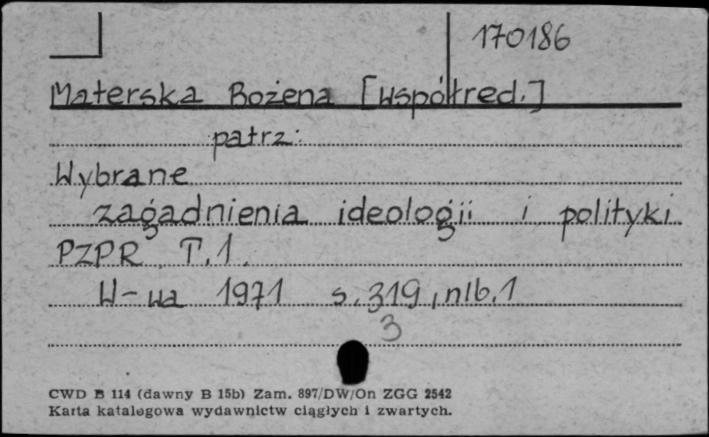 170186
Materska Bożena [współred.]
patrz:
Wybrane
zagadnienia ideologii i polityki
PZPR T.1.
W-wa 1971 s. 319, nlb. 1
3
CWD B 114 (dawny B 15b) Zam. 897/DW/On ZGG 2542
Karta katalogowa wydawnictw ciągłych i zwartych.